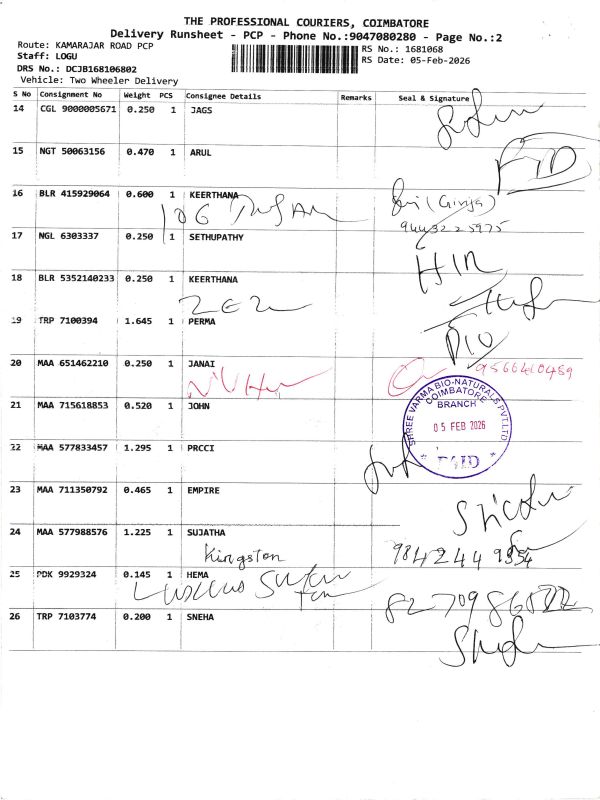 THE PROFESSIONAL COURIERS, COIMBATORE
Delivery Runsheet - PCP - Phone No.:9047080280 - Page No.:2
Route: KAMARAJAR ROAD PCP
Staff: LOGU
DRS No.: DCJB168106802
Vehicle: Two Wheeler Delivery
RS No.: 1681068
RS Date: 05-Feb-2026
S No Consignment No Weight PCS Consignee Details Remarks Seal & Signature
14 CGL 9000005671 0.250 1 JAGS
15 NGT 50063156 0.470 1 ARUL
16 BLR 415929064 0.600 1 KEERTHANA
(Girija)
9443225975
17 NGL 6303337 0.250 1 SETHUPATHY
18 BLR 5352140233 0.250 1 KEERTHANA
19 TRP 7100394 1.645 1 PERMA
20 MAA 651462210 0.250 1 JANAI
9566410489
21 MAA 715618853 0.520 1 JOHN
SHREE VARMA BIO-NATURALS PVT.LTD
COIMBATORE
BRANCH
05 FEB 2026
PAID
22 MAA 577833457 1.295 1 PRCCI
23 MAA 711350792 0.465 1 EMPIRE
24 MAA 577988576 1.225 1 SUJATHA
Kingston
25 PDK 9929324 0.145 1 HEMA
26 TRP 7103774 0.200 1 SNEHA